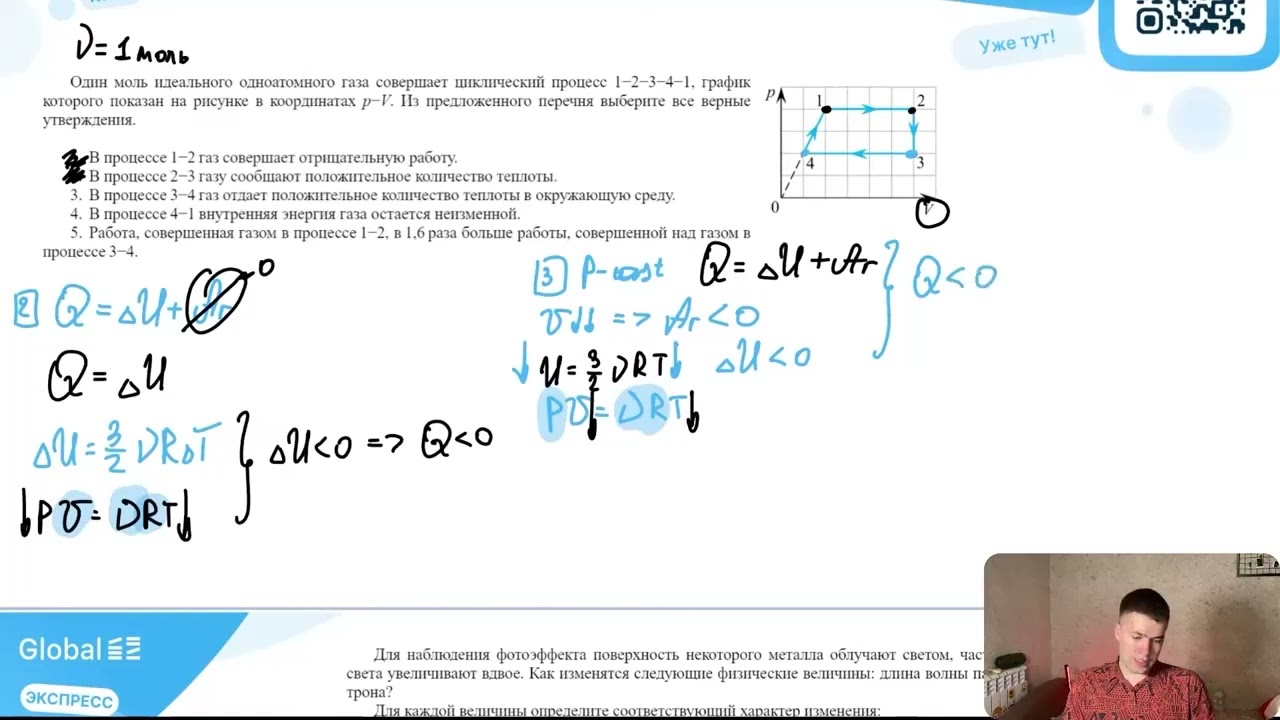 Уже тут!
ν = 1 моль
Один моль идеального одноатомного газа совершает циклический процесс 1−2−3−4−1, график
которого показан на рисунке в координатах p−V. Из предложенного перечня выберите все верные
утверждения.
В процессе 1−2 газ совершает отрицательную работу.
В процессе 2−3 газу сообщают положительное количество теплоты.
3. В процессе 3−4 газ отдает положительное количество теплоты в окружающую среду.
4. В процессе 4−1 внутренняя энергия газа остается неизменной.
5. Работа, совершенная газом в процессе 1−2, в 1,6 раза больше работы, совершенной над газом в
процессе 3−4.
p
1
2
4
3
0
V
2 Q = ΔU + Aг 0
Q = ΔU
ΔU = 3/2 νRΔT } ΔU < 0 => Q < 0
↓PV = νRT↓
3 P-const Q = ΔU + Aг } Q < 0
V↓↓ => Aг < 0
↓ U = 3/2 νRT↓ ΔU < 0
PV↓ = νRT↓
Global EE
ЭКСПРЕСС
Для наблюдения фотоэффекта поверхность некоторого металла облучают светом, час
света увеличивают вдвое. Как изменятся следующие физические величины: длина волны па
трона?
Для каждой величины определите соответствующий характер изменения: